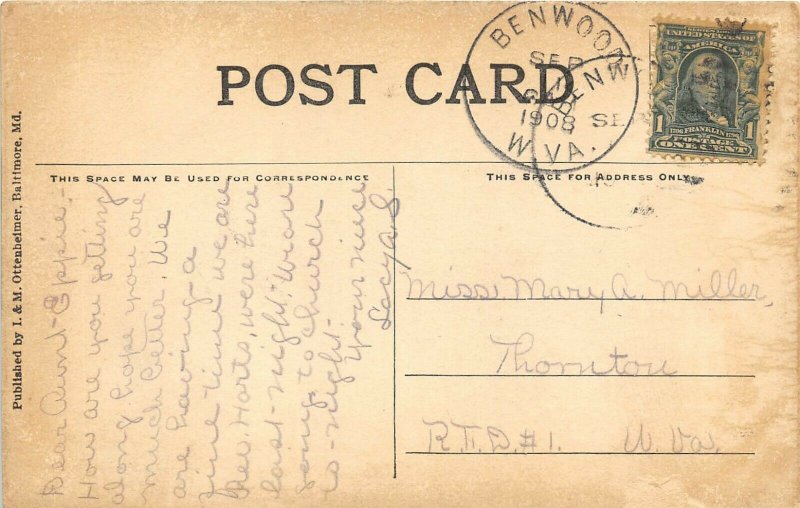 POST CARD
BENWOOD
SEP
1908
W. VA.
BENW
SE
SERIES 1902
UNITED STATES OF
AMERICA
1 1
1706 FRANKLIN 1790
POSTAGE
ONE CENT
THIS SPACE MAY BE USED FOR CORRESPONDENCE
THIS SPACE FOR ADDRESS ONLY.
Published by I. & M. Ottenheimer, Baltimore, Md.
Dear Aunt Eppie,-
How are you getting
along hope you are
much better. We
are having a
fine time we are
Rev. Harts, were here
last night.
going to church
to-night.
your niece
Lacy A. S.
Miss Mary A. Miller,
Thornton
R.F.D. #1. W. Va.